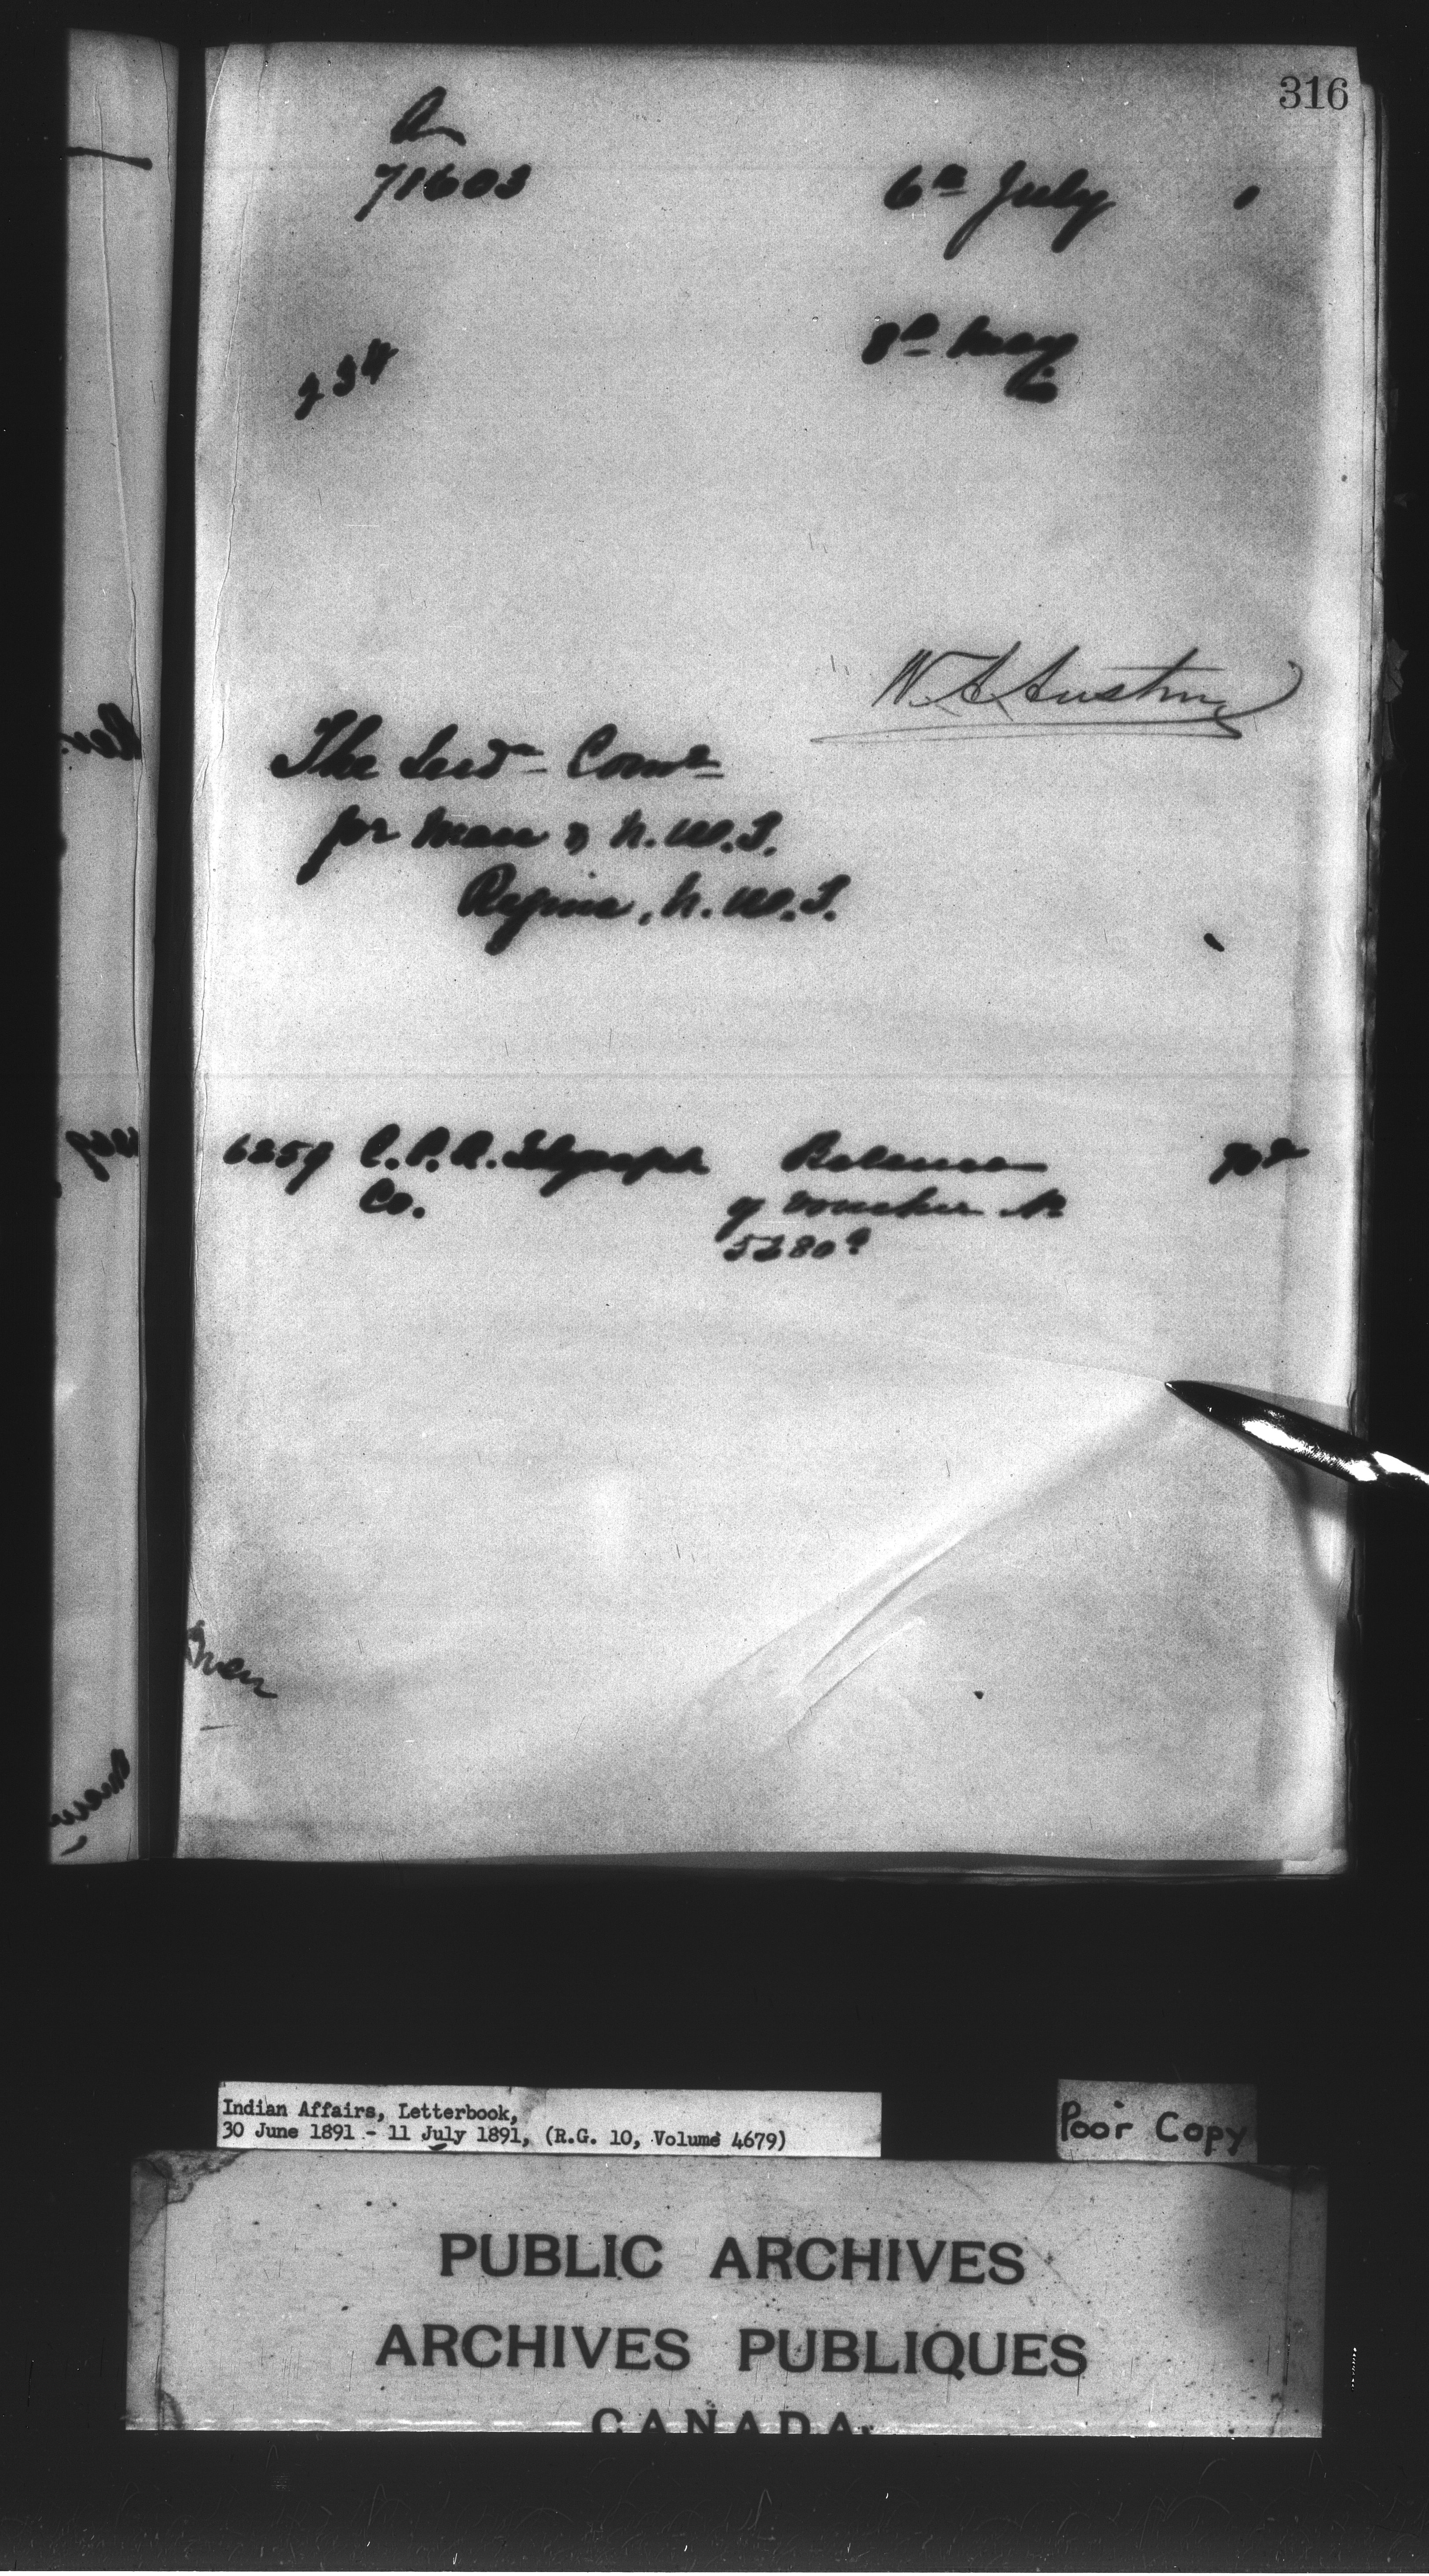 316
A
71603
6th July 1
234
8th May
W. A. Austin
The Ind'n Com'r
for Man & N.W.T.
Regina, N.W.T.
6259 C.P.R. Telegraph Balance
Co. of voucher No
5280
Indian Affairs, Letterbook,
30 June 1891 - 11 July 1891, (R.G. 10, Volume 4679)
Poor Copy
PUBLIC ARCHIVES
ARCHIVES PUBLIQUES
CANADA